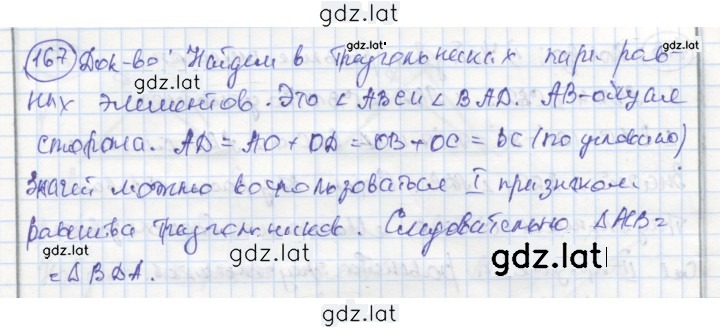 gdz.lat
167 Док-во: Найдем в треугольниках пары рав-
gdz.lat
gdz.lat
ных элементов. Это ∠ABC и ∠BAD. AB-общая
сторона. AD = AO + OD = OB + OC = BC (по условию)
Значит можно воспользоваться I признаком
равенства треугольников. Следовательно ΔACB =
gdz.lat
= ΔBDA.
gdz.lat
gdz.lat